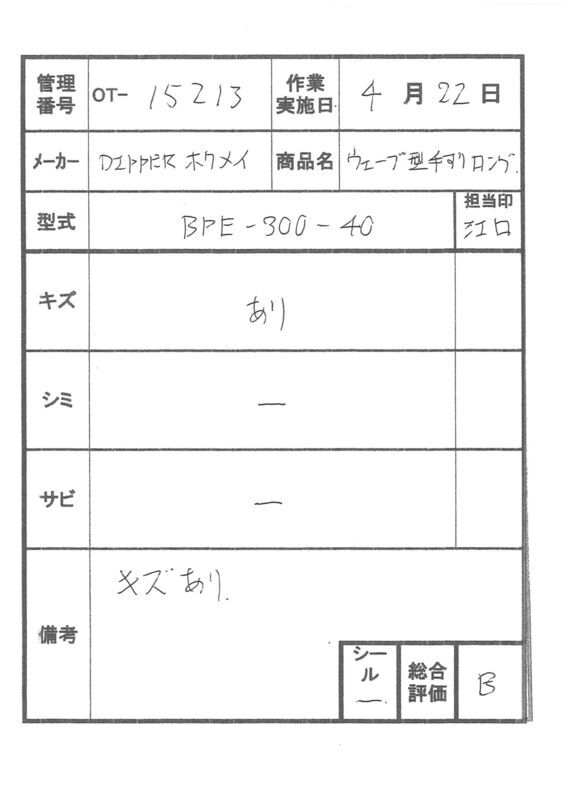 管理番号 OT- 15213 作業実施日 4月22日
メーカー DIPPERホクメイ 商品名 ウェーブ型手すりロング.
型式 BPE-300-40 担当印 江口
キズ あり
シミ —
サビ —
備考 キズあり.
シール — 総合評価 B